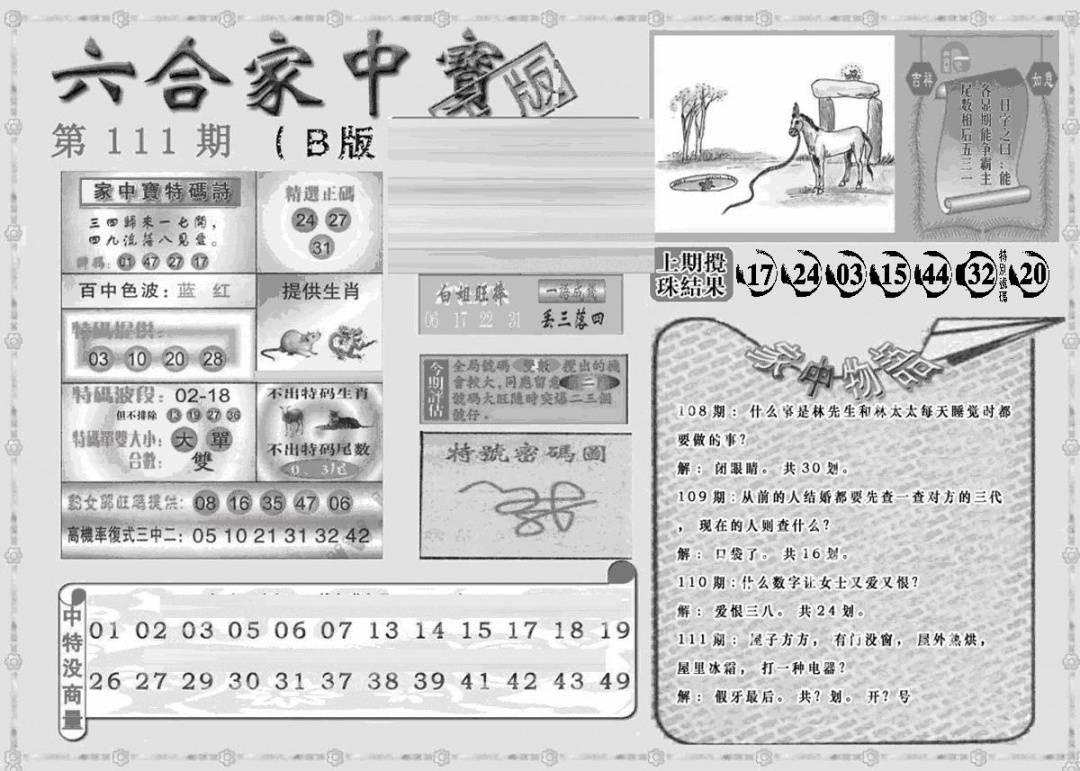 六合家中寶
版
第 111 期 （B版
家中寶特碼詩
三四歸來一七開，
四九流落八見愛。
01 47 27 17
精選正碼
24 27
31
百中色波：蓝 红
提供生肖
特碼提供：
03 10 20 28
特碼波段： 02-18
但不排除 13 19 27 36
特碼單雙大小： 大 單
合數： 雙
不出特码生肖
不出特码尾数
0、3尾
旺碼提供： 08 16 35 47 06
高機率復式三中二：05 10 21 31 32 42
白姐旺棒
06 17 22 31
一語成
丢三落四
今期評估
全局號碼 雙數 攪出的機
會較大，同應留意 第二
號碼大旺隨時突爆二三個
號仔。
特號密碼圖
吉祥
如意
一日字之曰：能
各显期能争霸主
尾数相后五三一
上期攪珠結果 17 24 03 15 44 32 特別號碼 20
家中物語
108 期： 什么事是林先生和林太太每天睡觉时都
要做的事？
解： 闭眼睛。 共 30 划。
109 期：从前的人结婚都要先查一查对方的三代
， 现在的人则查什么？
解： 口袋了。 共 16 划。
110 期：什么数字让女士又爱又恨？
解： 爱恨三八。 共 24 划。
111 期： 屋子方方， 有门没窗， 屋外热烘，
屋里冰霜， 打一种电器？
解： 假牙最后。 共？划。 开？号
中特没商量
01 02 03 05 06 07 13 14 15 17 18 19
26 27 29 30 31 37 38 39 41 42 43 49